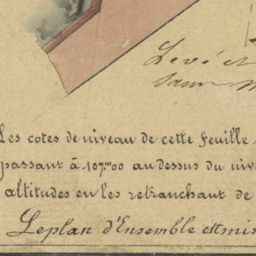 Levé et
Les cotes de niveau de cette feuille
passant à 107.m00 au dessus du niv
altitudes en les retranchant de
Le plan d'Ensemble est mis